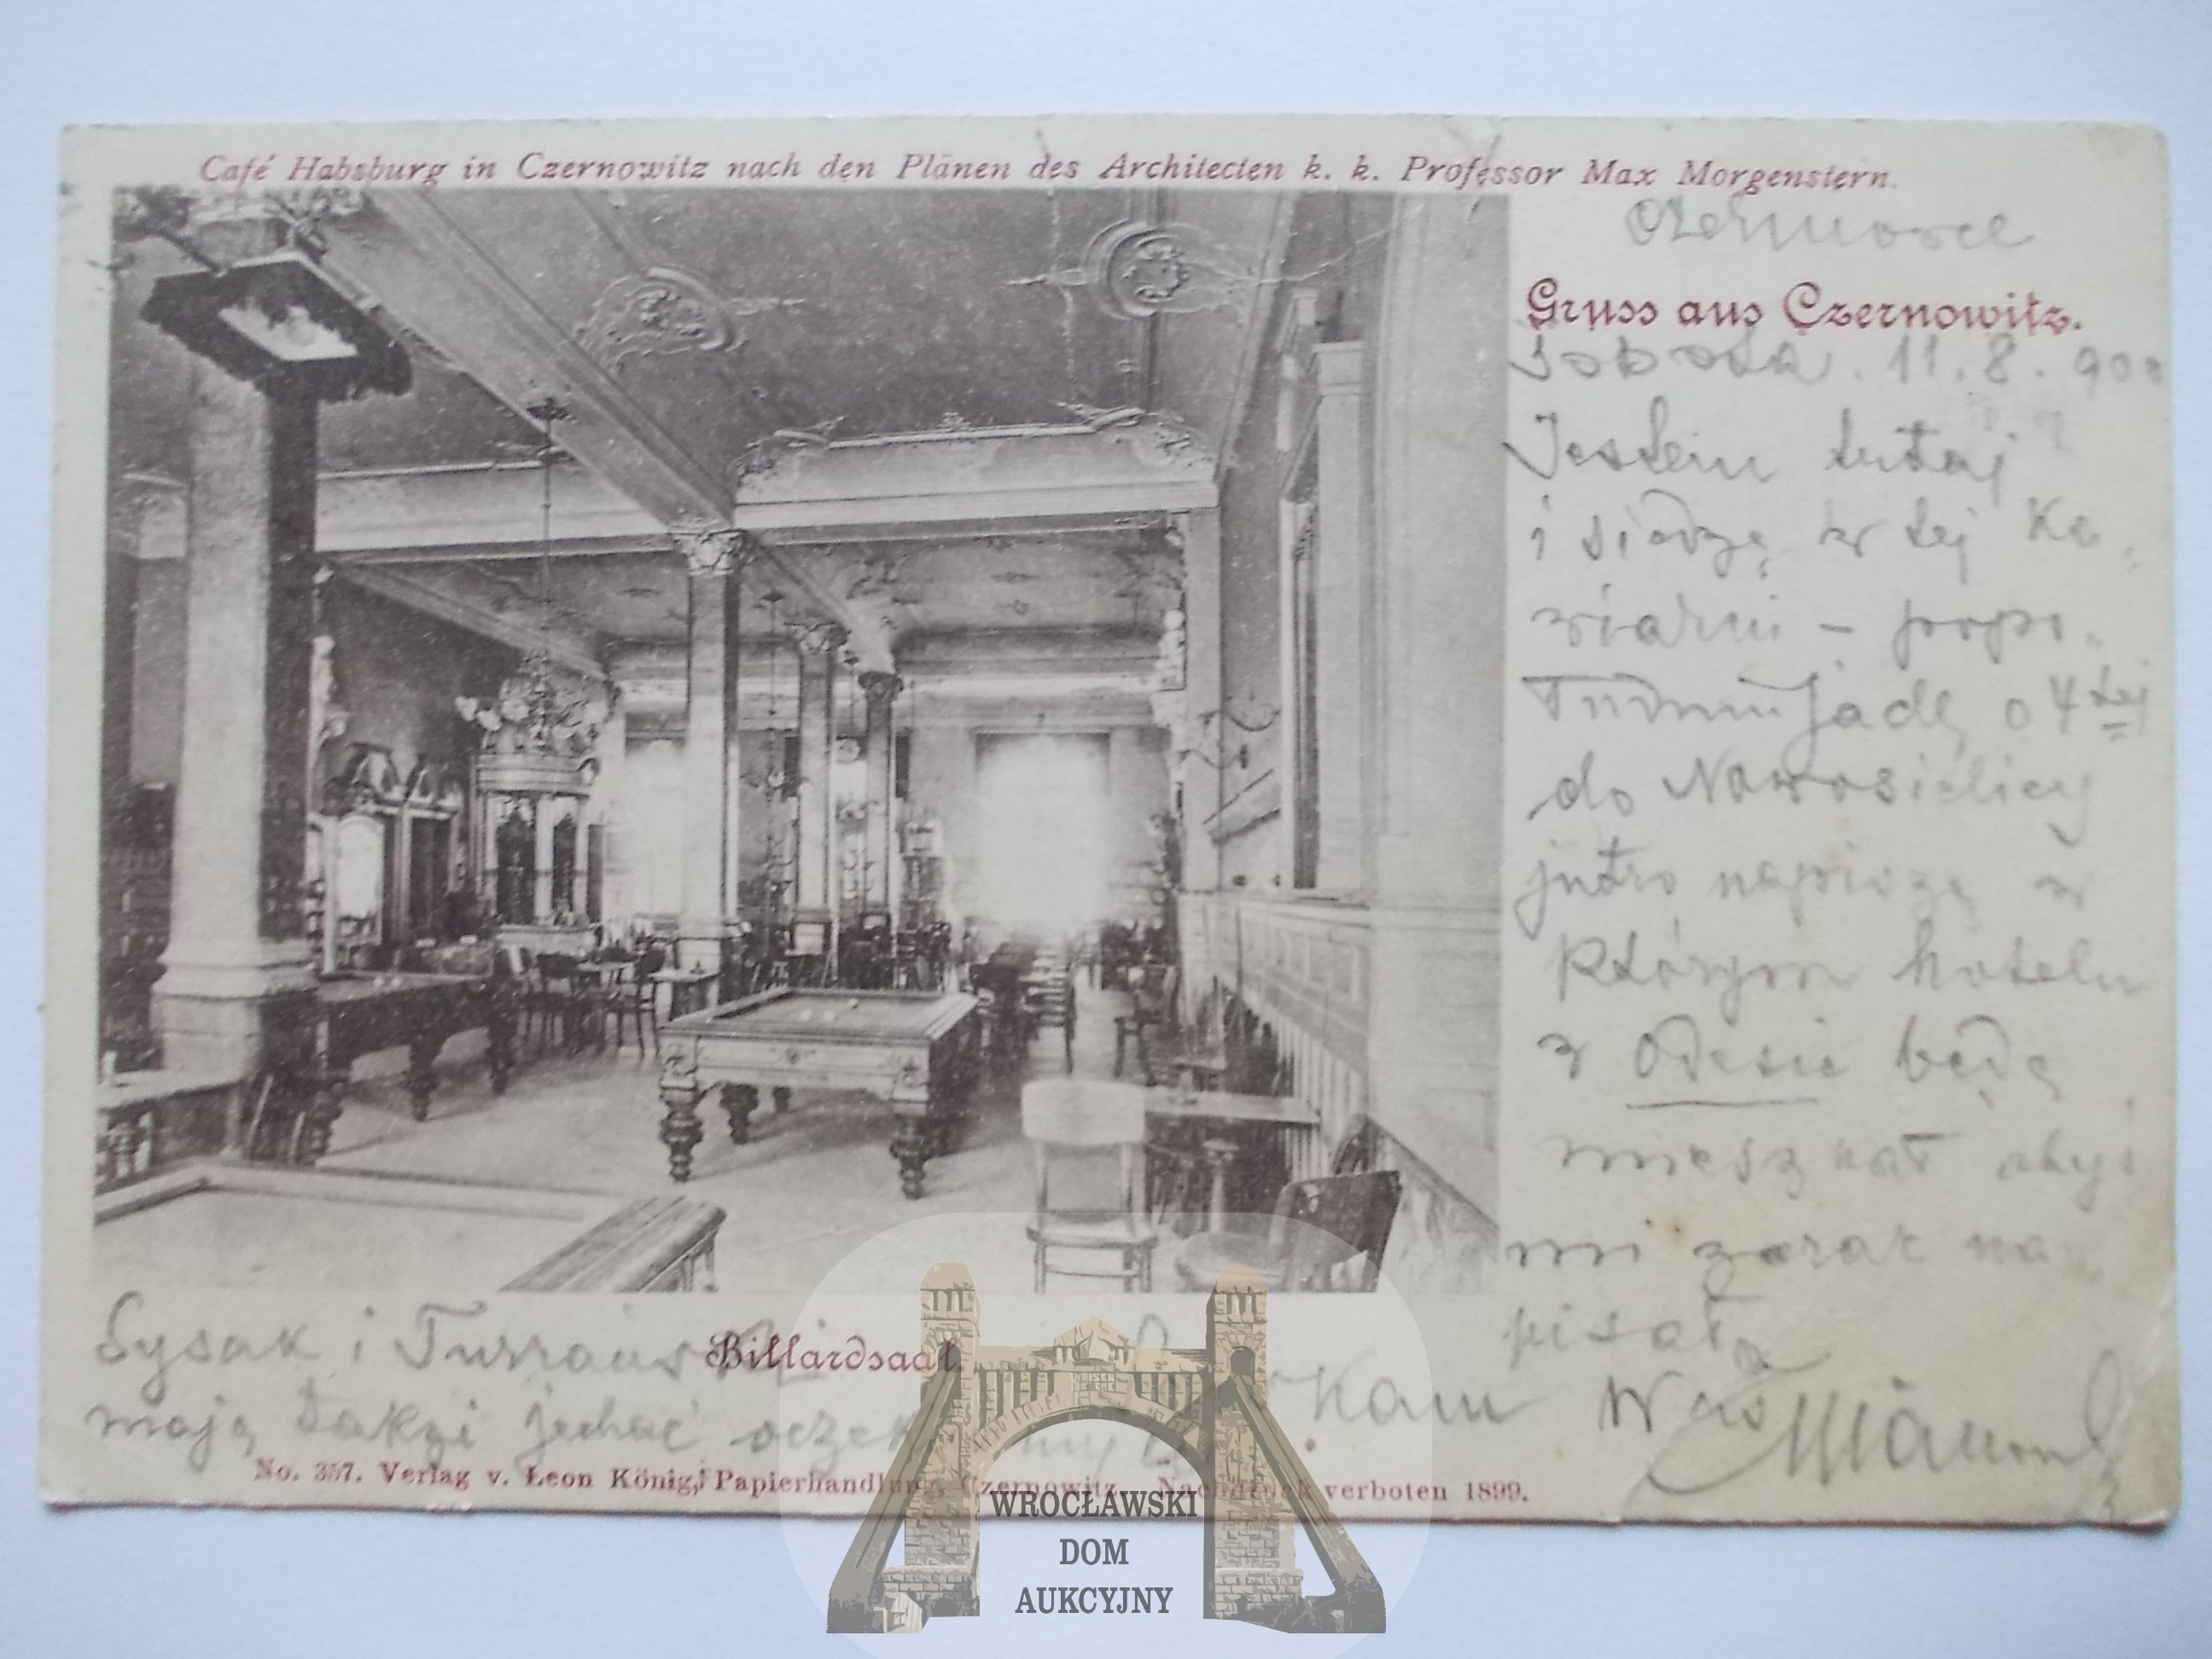 Café Habsburg in Czernowitz nach den Plänen des Architecten k. k. Professor Max Morgenstern.
Gruss aus Czernowitz.
Sobota. 11.8.900
Jestem tutaj
i siedzę w tej Ka-
wiarni – popo-
łudniu jadę o 4tej
do Nowosielicy
jutro napiszę w
którym hotelu
w Odesie będę
mieszkał abyś
mi zaraz na-
pisała
Sysak i
Billardsaal.
mają także jechać
kam Was
No. 357. Verlag v. Leon König, Papierhandlung, Czernowitz. Nachdruck verboten 1899.
WROCŁAWSKI
DOM
AUKCYJNY